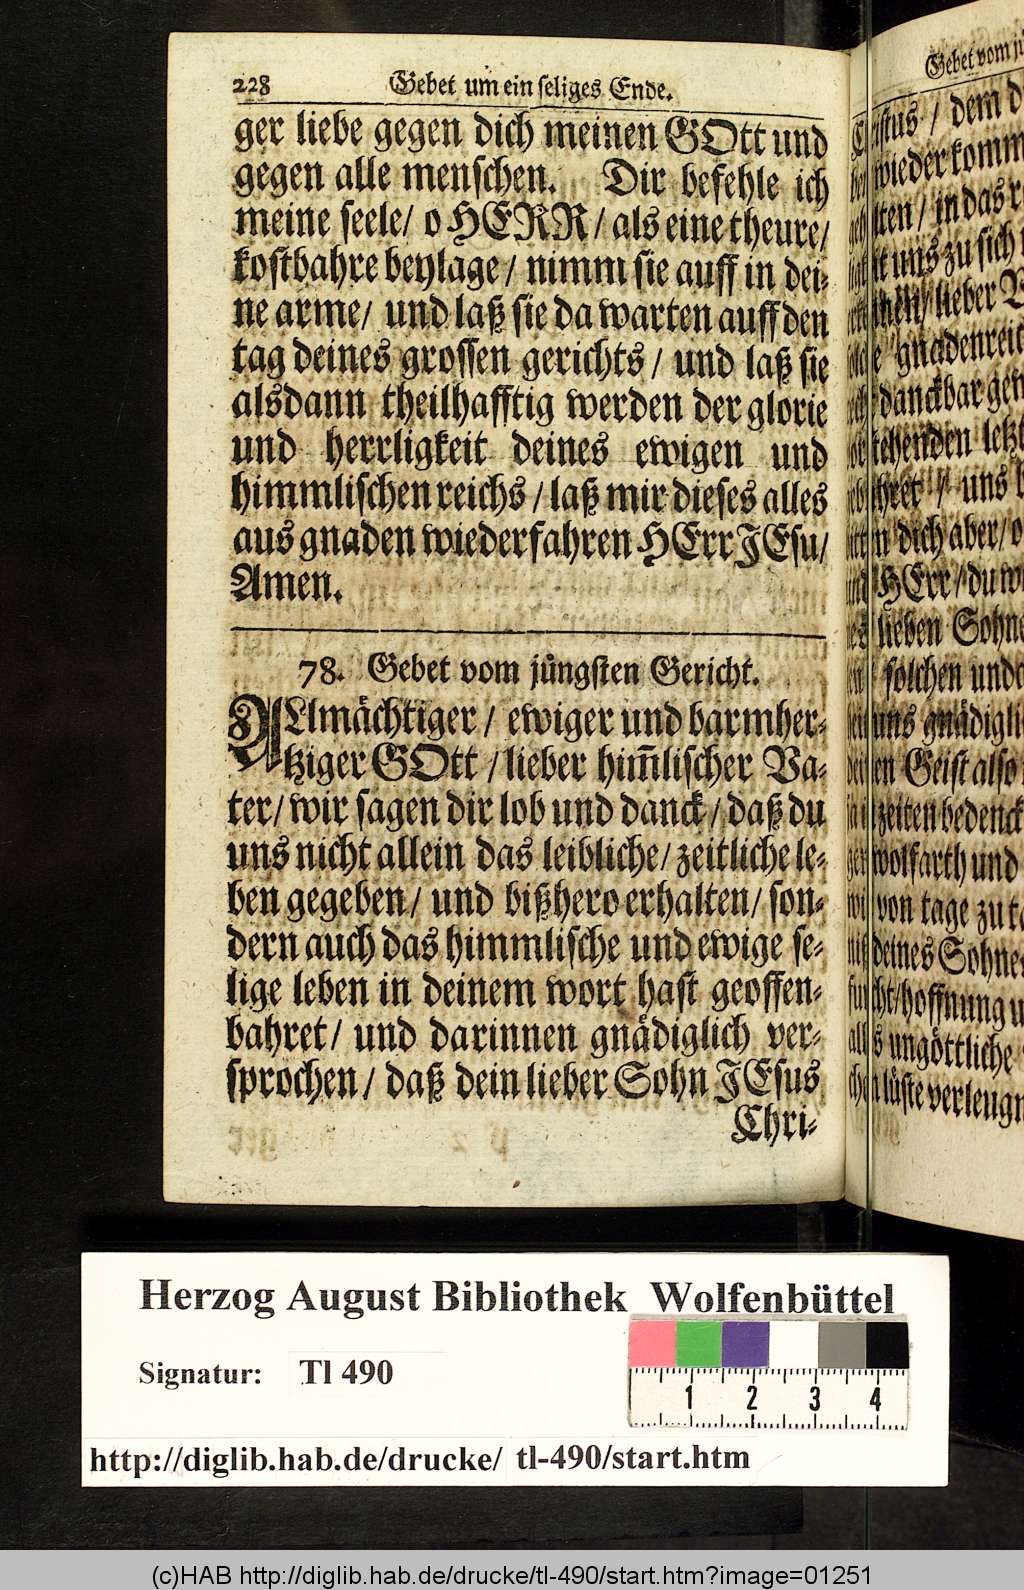 228 Gebet um ein seliges Ende.
ger liebe gegen dich meinen GOtt und
gegen alle menschen. Dir befehle ich
meine seele/ o HERR/ als eine theure/
kostbahre beylage/ nimm sie auff in dei-
ne arme/ und laß sie da warten auff den
tag deines grossen gerichts/ und laß sie
alsdann theilhafftig werden der glorie
und herrligkeit deines ewigen und
himmlischen reichs/ laß mir dieses alles
aus gnaden wiederfahren HErr JEsu/
Amen.
78. Gebet vom jüngsten Gericht.
ALlmächtiger/ ewiger und barmher-
tziger GOtt/ lieber him̃lischer Va-
ter/ wir sagen dir lob und danck/ daß du
uns nicht allein das leibliche/ zeitliche le-
ben gegeben/ und bißhero erhalten/ son-
dern auch das himmlische und ewige se-
lige leben in deinem wort hast geoffen-
bahret/ und darinnen gnädiglich ver-
sprochen/ daß dein lieber Sohn JEsus
Chri-
Gebet vom
/ dem
wieder
/ in das
uns zu sich
lieber
gnadenreic
danckbar
letz
/ uns
dich aber/ o
HErr/ du
lieben Sohn
solchen
uns gnädigli
Geist also
zeiten bedenck
wolfarth und
von tage zu
deines Sohne
hoffnung
ungöttliche
lüste verleug
Herzog August Bibliothek Wolfenbüttel
Signatur: Tl 490
1 2 3 4
http://diglib.hab.de/drucke/ tl-490/start.htm
(c)HAB http://diglib.hab.de/drucke/tl-490/start.htm?image=01251